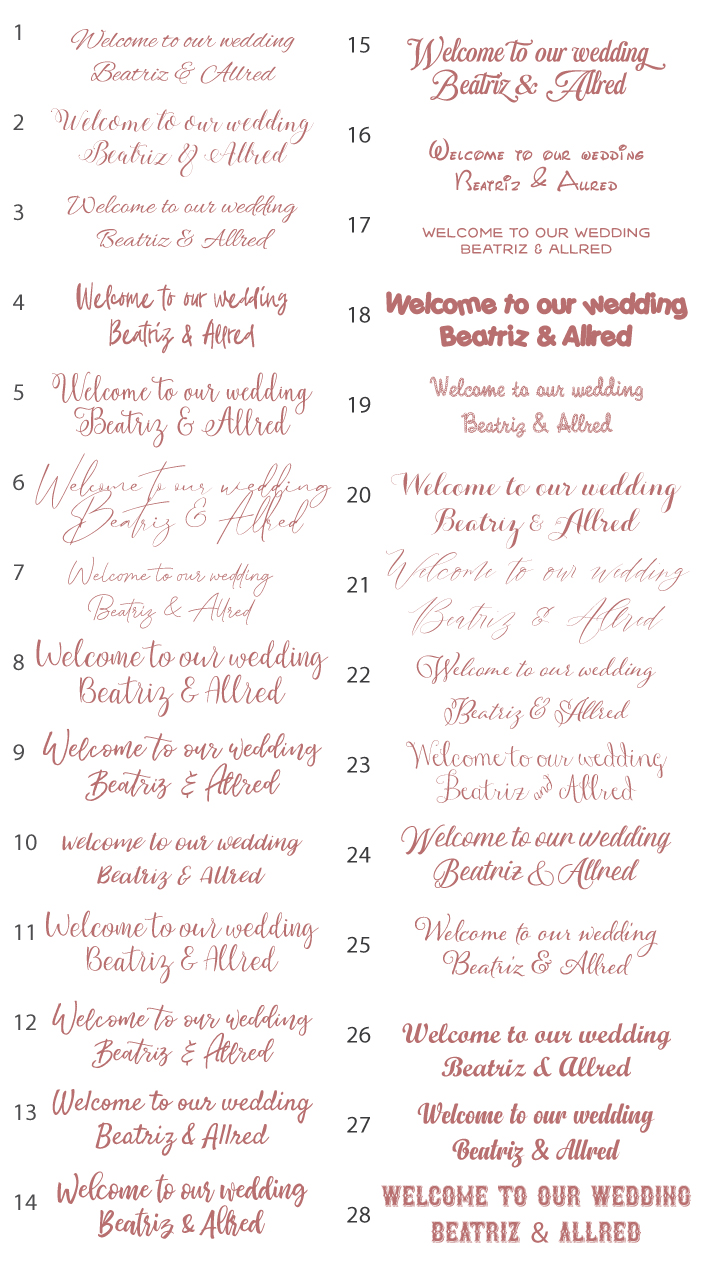 1
Welcome to our wedding
Beatriz & Allred
2
Welcome to our wedding
Beatriz & Allred
3
Welcome to our wedding
Beatriz & Allred
4
Welcome to our wedding
Beatriz & Allred
5
Welcome to our wedding
Beatriz & Allred
6
Welcome to our wedding
Beatriz & Allred
7
Welcome to our wedding
Beatriz & Allred
8
Welcome to our wedding
Beatriz & Allred
9
Welcome to our wedding
Beatriz & Allred
10
welcome to our wedding
Beatriz & Allred
11
Welcome to our wedding
Beatriz & Allred
12
Welcome to our wedding
Beatriz & Allred
13
Welcome to our wedding
Beatriz & Allred
14
Welcome to our wedding
Beatriz & Allred
15
Welcome to our wedding
Beatriz & Allred
16
Welcome to our wedding
Beatriz & Allred
17
WELCOME TO OUR WEDDING
BEATRIZ & ALLRED
18
Welcome to our wedding
Beatriz & Allred
19
Welcome to our wedding
Beatriz & Allred
20
Welcome to our wedding
Beatriz & Allred
21
Welcome to our wedding
Beatriz & Allred
22
Welcome to our wedding
Beatriz & Allred
23
Welcome to our wedding
Beatriz and Allred
24
Welcome to our wedding
Beatriz & Allred
25
Welcome to our wedding
Beatriz & Allred
26
Welcome to our wedding
Beatriz & Allred
27
Welcome to our wedding
Beatriz & Allred
28
WELCOME TO OUR WEDDING
BEATRIZ & ALLRED